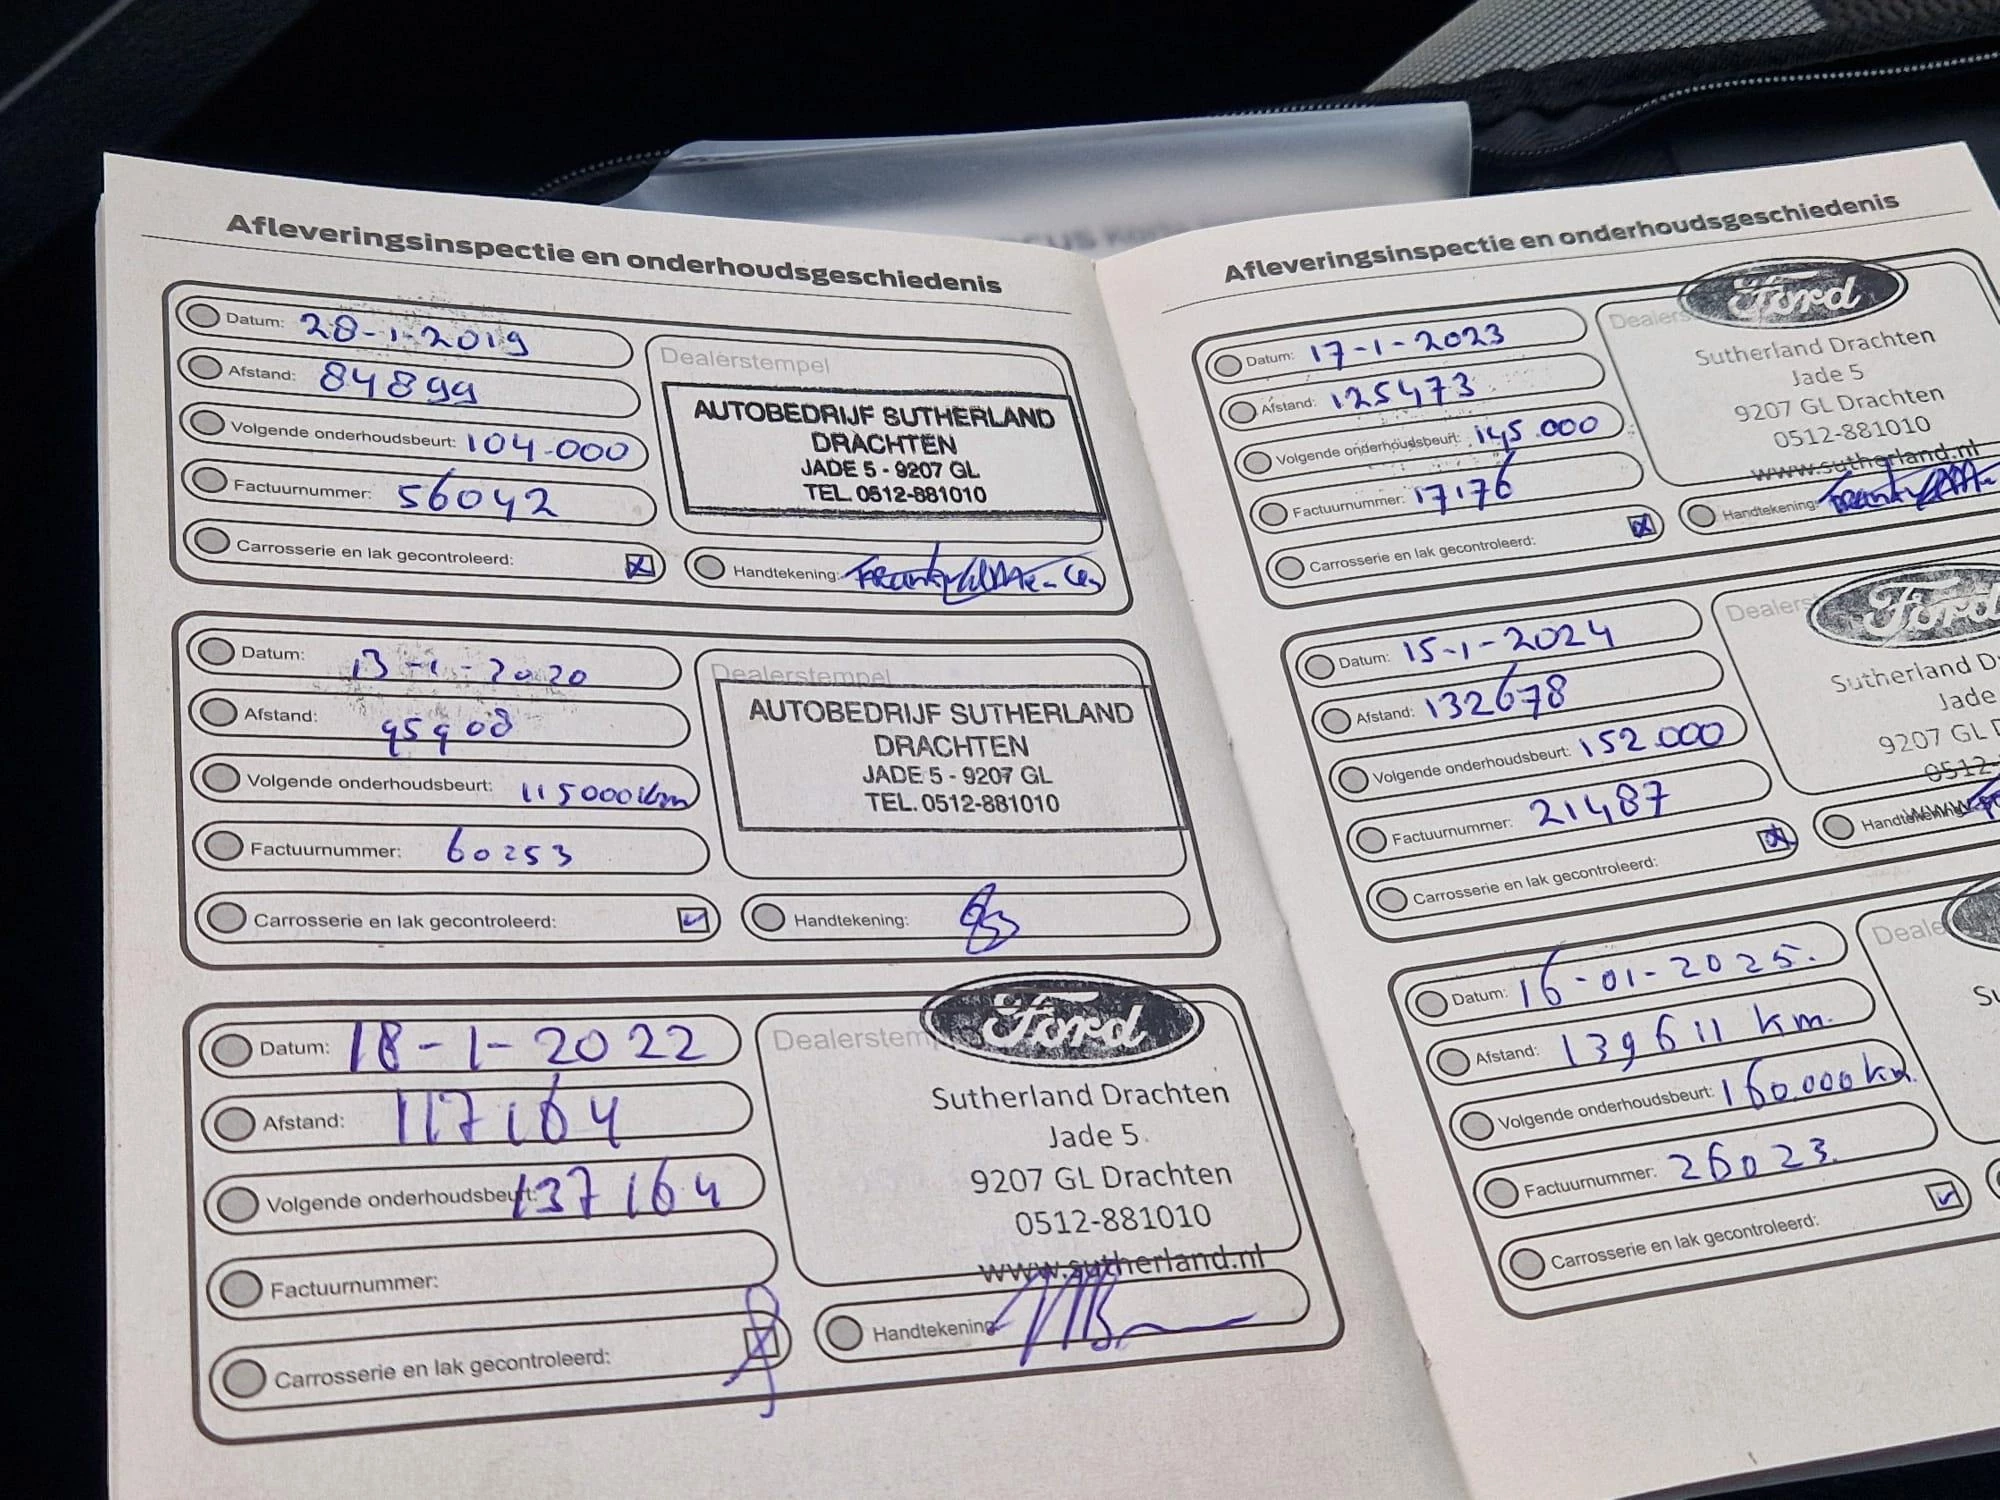 Afleveringsinspectie en onderhoudsgeschiedenis
Datum: 28-1-2019
Afstand: 84899
Volgende onderhoudsbeurt: 104.000
Factuurnummer: 56042
Carrosserie en lak gecontroleerd:
Dealerstempel
AUTOBEDRIJF SUTHERLAND
DRACHTEN
JADE 5 - 9207 GL
TEL. 0512-881010
Handtekening:
Datum: 13-1-2020
Afstand: 95908
Volgende onderhoudsbeurt: 115000km
Factuurnummer: 60253
Carrosserie en lak gecontroleerd:
Dealerstempel
AUTOBEDRIJF SUTHERLAND
DRACHTEN
JADE 5 - 9207 GL
TEL. 0512-881010
Handtekening:
Datum: 18-1-2022
Afstand: 117164
Volgende onderhoudsbeurt: 137164
Factuurnummer:
Carrosserie en lak gecontroleerd:
Dealerstem
Ford
Sutherland Drachten
Jade 5
9207 GL Drachten
0512-881010
www.sutherland.nl
Handtekening
Afleveringsinspectie en onderhoudsgeschiedenis
Datum: 17-1-2023
Afstand: 125473
Volgende onderhoudsbeurt: 145.000
Factuurnummer: 17176
Carrosserie en lak gecontroleerd:
Dealers
Ford
Sutherland Drachten
Jade 5
9207 GL Drachten
0512-881010
www.sutherland.nl
Handtekening:
Datum: 15-1-2024
Afstand: 132678
Volgende onderhoudsbeurt: 152.000
Factuurnummer: 21487
Carrosserie en lak gecontroleerd:
Dealers
Ford
Sutherland D
Jade
9207 GL D
0512-
www.
Handtekening
Datum: 16-01-2025.
Afstand: 139611 km.
Volgende onderhoudsbeurt: 160.000 km.
Factuurnummer: 26023.
Carrosserie en lak gecontroleerd:
Deale
Su